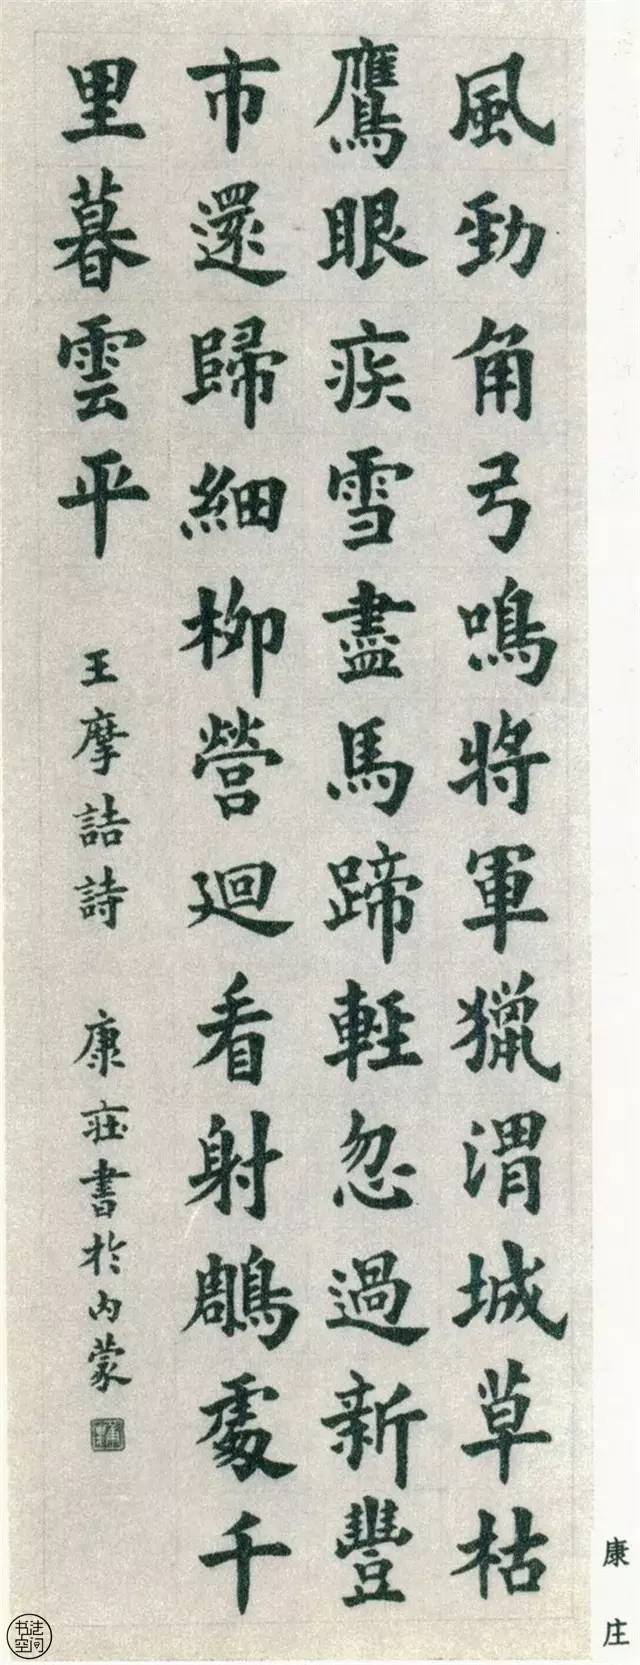 風勁角弓鳴將軍獵渭城草枯
鷹眼疾雪盡馬蹄輕忽過新豐
市還歸細柳營迴看射鵰處千
里暮雲平
王摩詰詩 康莊書於內蒙
康庄
书法
空间